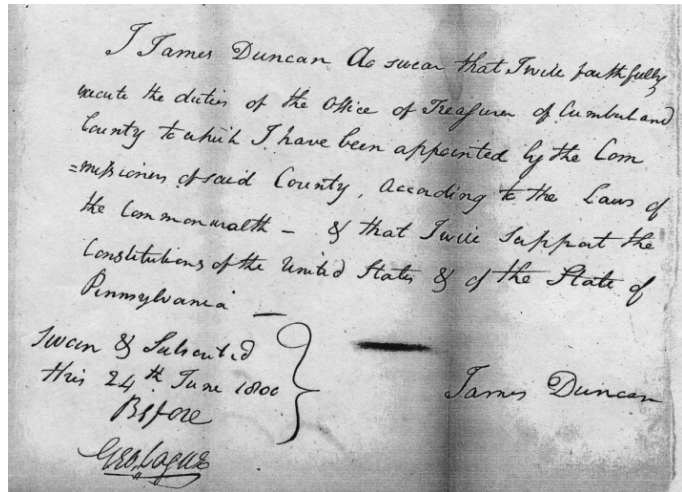 I James Duncan do swear that I will faithfully
execute the duties of the Office of Treasurer of Cumberland
County to which I have been appointed by the Com
=missioners of said County, according to the Laws of
the Commonwealth - & that I will support the
Constitutions of the United States & of the State of
Pennsylvania —
Sworn & Subscribed
this 24th June 1800
Before
James Duncan
Geo. Logue